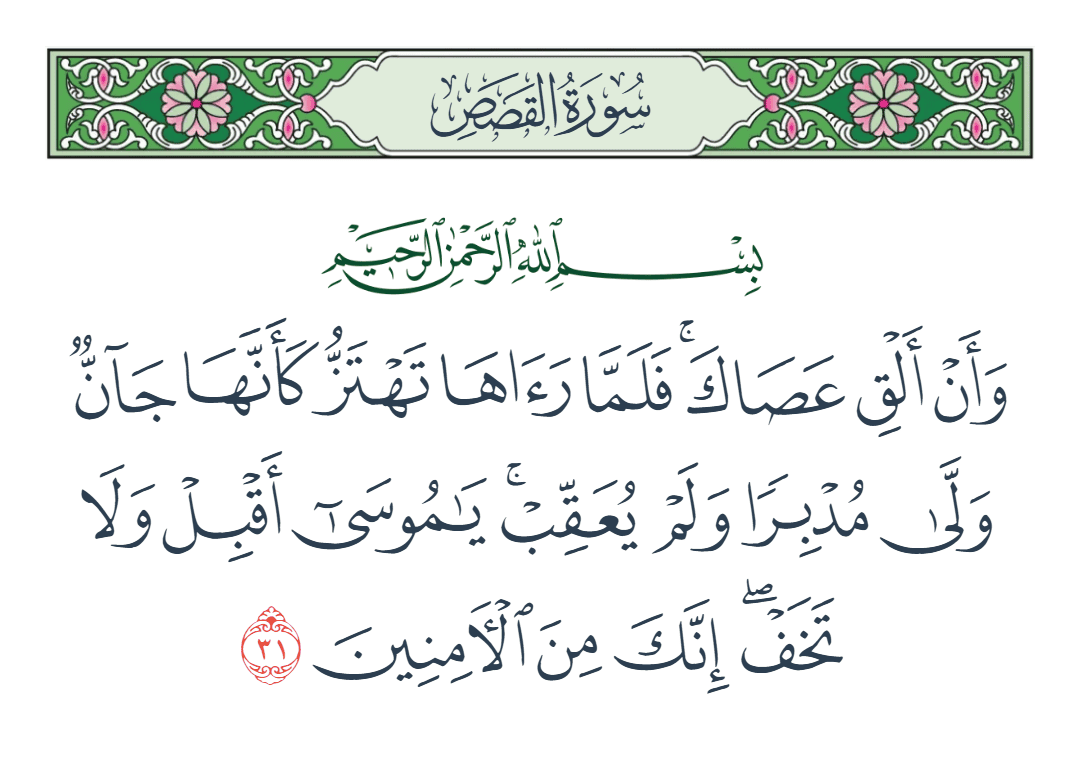 سُورَةُ القَصَصِ
بِسْمِ ٱللَّهِ ٱلرَّحْمَٰنِ ٱلرَّحِيمِ
وَأَنْ أَلْقِ عَصَاكَۚ فَلَمَّا رَءَاهَا تَهْتَزُّ كَأَنَّهَا جَآنٌّ
وَلَّىٰ مُدْبِرًا وَلَمْ يُعَقِّبْۚ يَٰمُوسَىٰٓ أَقْبِلْ وَلَا
تَخَفْۖ إِنَّكَ مِنَ ٱلْأَمِنِينَ ٣١